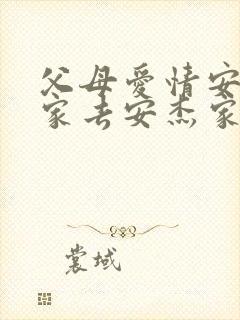 父母愛情安
家去安杰家
裳域